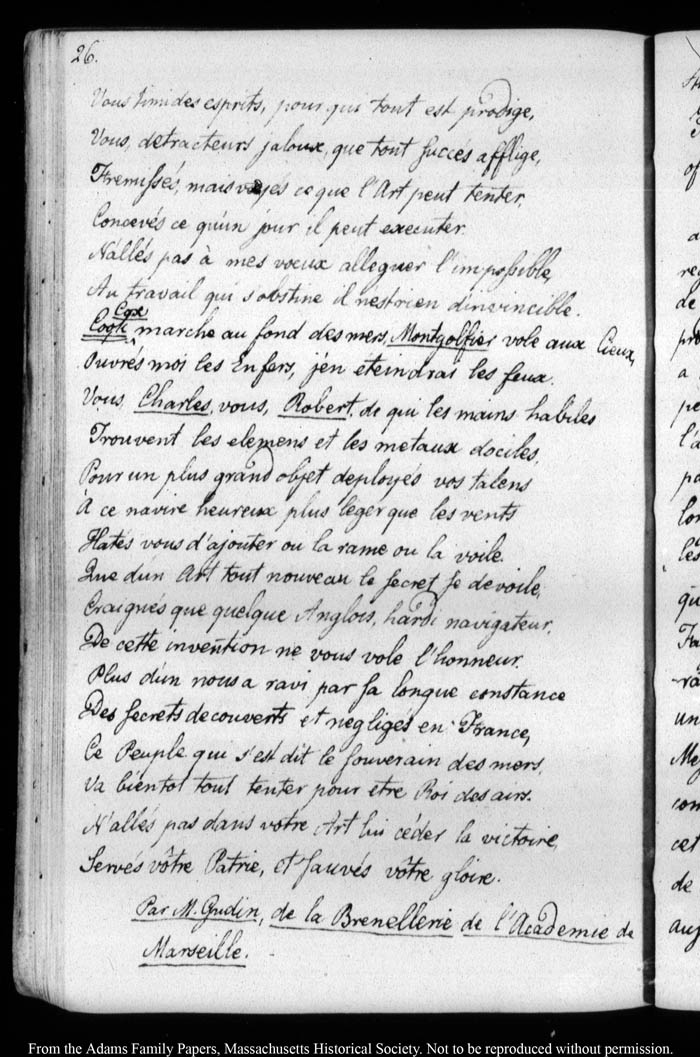 26.
Vous timides esprits, pour qui tout est prodige,
Vous, detracteurs jaloux, que tout succés afflige,
Fremissés, mais voyés ce que l'Art peut tenter,
Concevés ce qu'un jour il peut executer.
N'allés pas à mes voeux alleguer l'impossible,
Au travail qui s'obstine il n'est rien d'invincible.
Cox
marche au fond des mers, Montgolfier vole aux Cieux,
Ouvrés moi les Enfers, j'en eteindrai les feux.
Vous, Charles, vous, Robert, de qui les mains habiles
Trouvent les elemens et les metaux dociles,
Pour un plus grand objet deployés vos talens
À ce navire heureux plus léger que les vents
Hatés vous d'ajouter ou la rame ou la voile.
Que d'un Art tout nouveau le secret se devoile,
Craignés que quelque Anglois, hardi navigateur,
De cette invention ne vous vole l'honneur.
Plus d'un nous a ravi par sa longue constance
Des secrets decouverts et negligés en France,
Ce Peuple qui s'est dit le souverain des mers,
Va bientot tout tenter pour etre Roi des airs.
N'allés pas dans votre Art lui céder la victoire,
Servés vôtre Patrie, et sauvés vôtre gloire.
Par M. Gudin, de la Brenellerie de l'Academie de
Marseille.
From the Adams Family Papers, Massachusetts Historical Society. Not to be reproduced without permission.